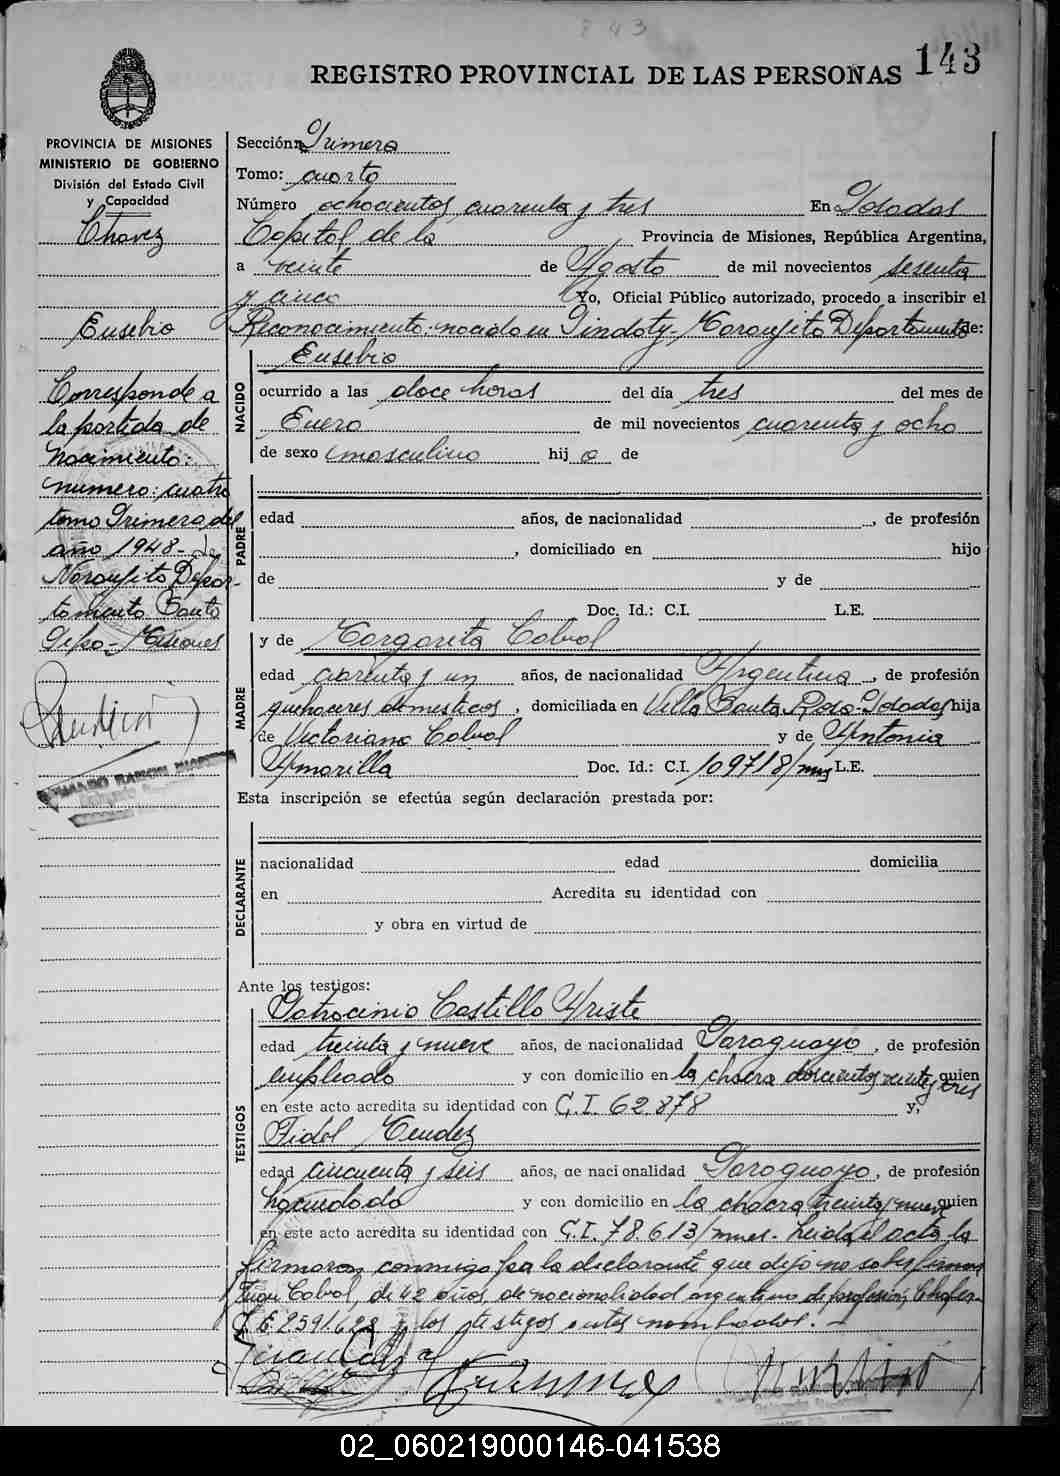 143
REGISTRO PROVINCIAL DE LAS PERSONAS
PROVINCIA DE MISIONES
MINISTERIO DE GOBIERNO
División del Estado Civil
y Capacidad
Chavez
Eusebio
Corresponde a
la partida de
nacimiento:
numero: cuatro
tomo Primero del
año 1948-
Departamento Santo
Pipo - Misiones
Sección: Primera
Tomo: cuarto
Número ochocientos cuarenta y tres En Posadas
Capital de la Provincia de Misiones, República Argentina,
a veinte de Agosto de mil novecientos sesenta
y cinco Yo, Oficial Público autorizado, procedo a inscribir el
Reconocimiento: nacido en Departamento de:
Eusebio
NACIDO
ocurrido a las doce horas del día tres del mes de
Enero de mil novecientos cuarenta y ocho
de sexo masculino hijo de
PADRE
edad años, de nacionalidad , de profesión
, domiciliado en hijo
de y de
Doc. Id.: C.I. L.E.
MADRE
y de Margarita Cabral
edad cuarenta y un años, de nacionalidad Argentina, de profesión
quehaceres domesticos, domiciliada en Villa Santa Rosa-Posadas hija
de Victoriano Cabral y de Antonia
Amarilla Doc. Id.: C.I. 109718/mns L.E.
Esta inscripción se efectúa según declaración prestada por:
DECLARANTE
nacionalidad edad domicilia
en Acredita su identidad con
y obra en virtud de
Ante los testigos:
TESTIGOS
Patrocinio Castillo Ariste
edad treinta y nueve años, de nacionalidad Paraguayo, de profesión
empleado y con domicilio en la chacra doscientos veinte y tres quien
en este acto acredita su identidad con C.I. 62.878 y,
Fidel Mendez
edad cincuenta y seis años, de nacionalidad Paraguayo, de profesión
hacendado y con domicilio en la chacra treinta y nueve quien
en este acto acredita su identidad con C.I. 78.613/mnes. Leida el acta la
firmaron conmigo por la declarante que dijo no saber firmar
Juan Cabral, de 42 años, de nacionalidad argentino de profesión, Chofer-
L.E. 2591.628 y los testigos antes nombrados.-
Juan Cabral
02_060219000146-041538